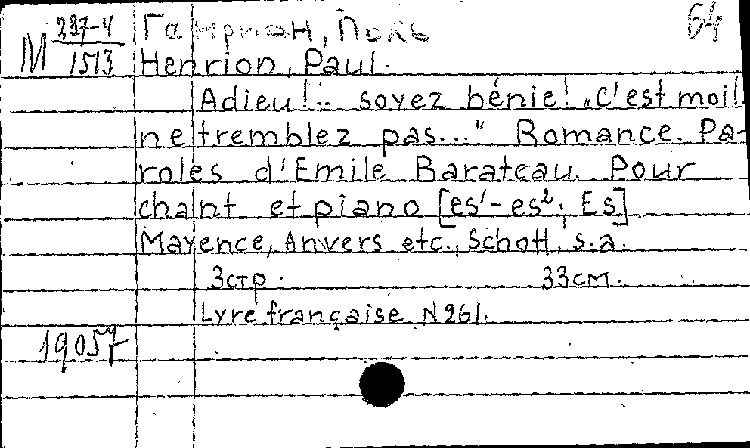 М 237-4/1513
Гамрион, Поль
64
Henrion, Paul.
Adieu!.. soyez bénie! „C'est moi!
ne tremblez pas..." Romance. Pa-
roles d'Emile Barateau. Pour
chant et piano [es¹-es²; Es]
Mayence, Anvers etc., Schott, s.a.
3 стр. 33 см.
Lyre française N 261.
19057